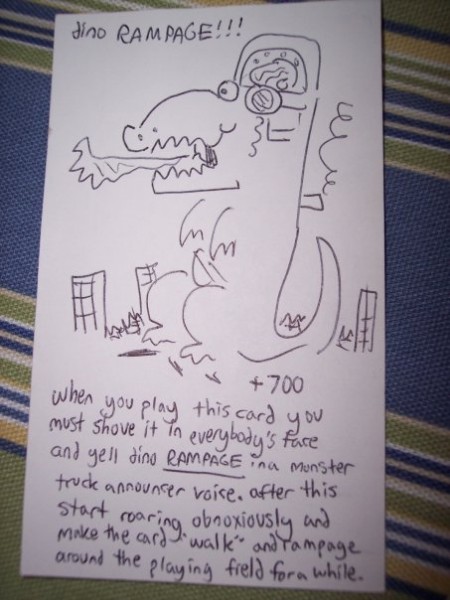 dino RAMPAGE!!!
+700
when you play this card you
must shove it in everybody's face
and yell dino RAMPAGE in a monster
truck announcer voice. after this
start roaring obnoxiously and
make the card "walk" and rampage
around the playing field for a while.